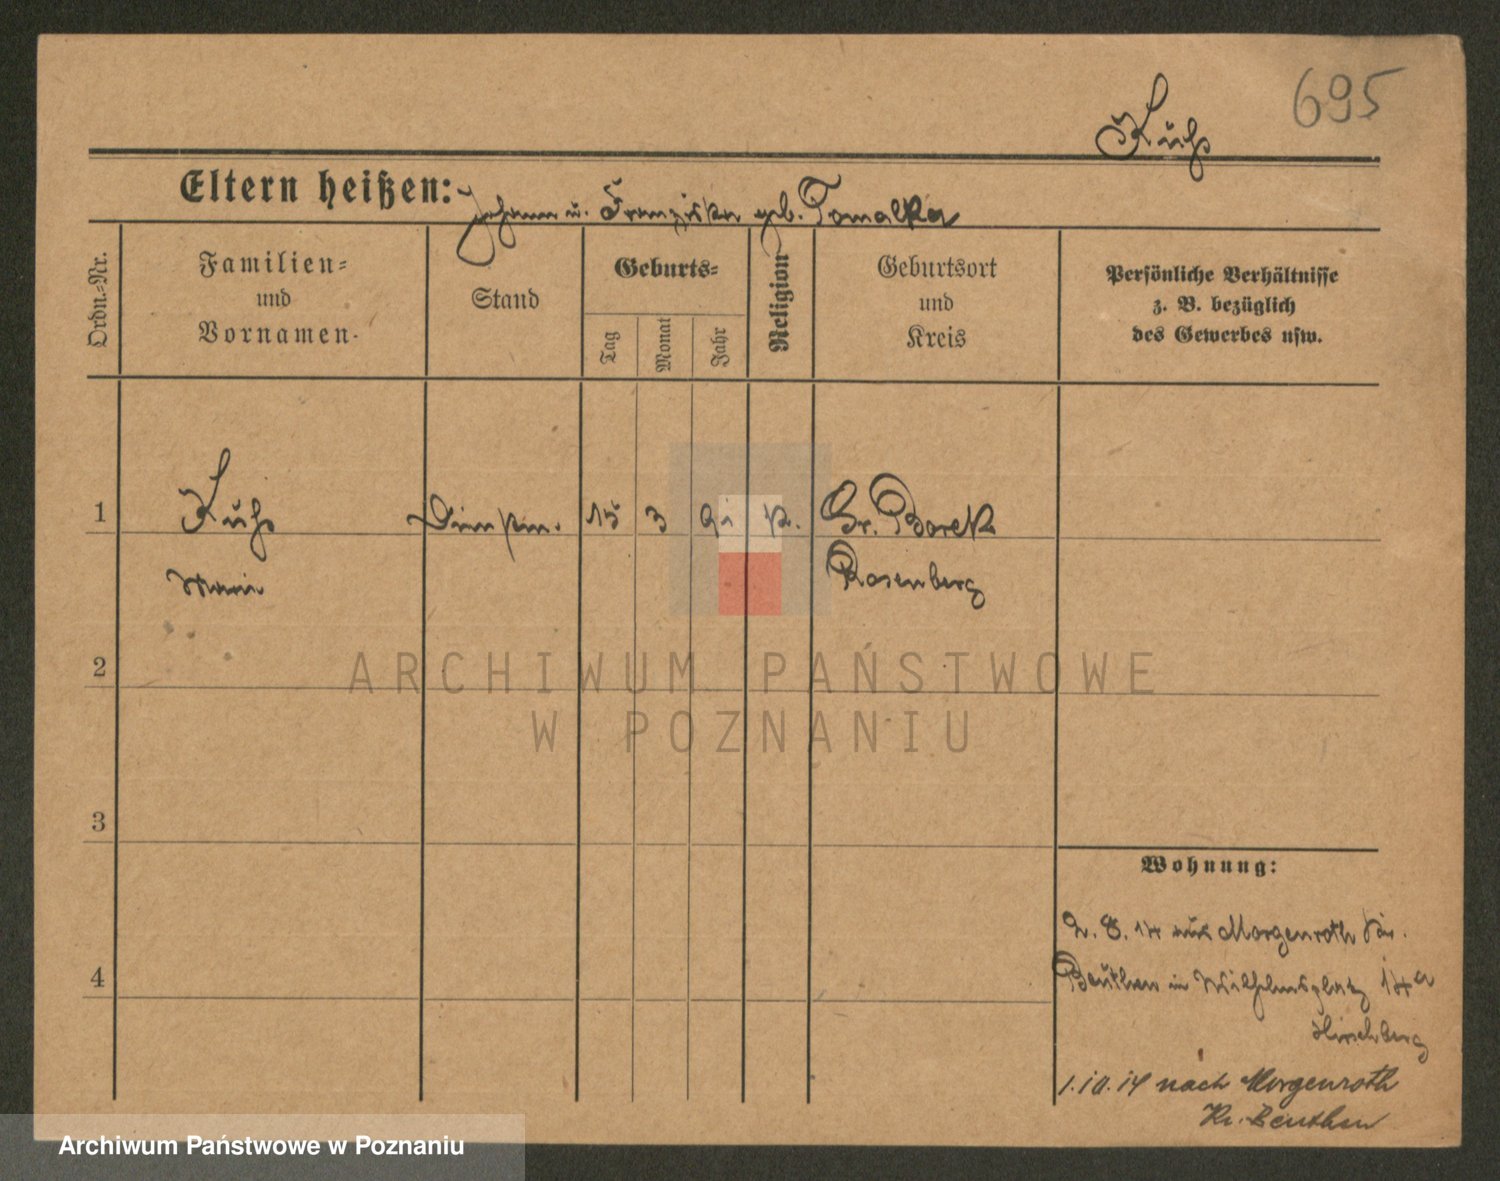 695
Kuhs
Eltern heißen: Johann u. Franziska geb. Tomalka
Ordn.=Nr.
Familien=
und
Vornamen.
Stand
Geburts=
Tag
Monat
Jahr
Religion
Geburtsort
und
Kreis
Persönliche Verhältnisse
z. B. bezüglich
des Gewerbes usw.
1 Kuhs 15 3 91 k. Gr. Borek
Marie Rosenberg
2
ARCHIWUM PAŃSTWOWE
W POZNANIU
3
Wohnung:
2. 8. 14 aus Morgenroth Kr.
4
Beuthen in Wilhelmsplatz 14a
Hirschberg
1.10.14 nach Morgenroth
Kr. Beuthen
Archiwum Państwowe w Poznaniu